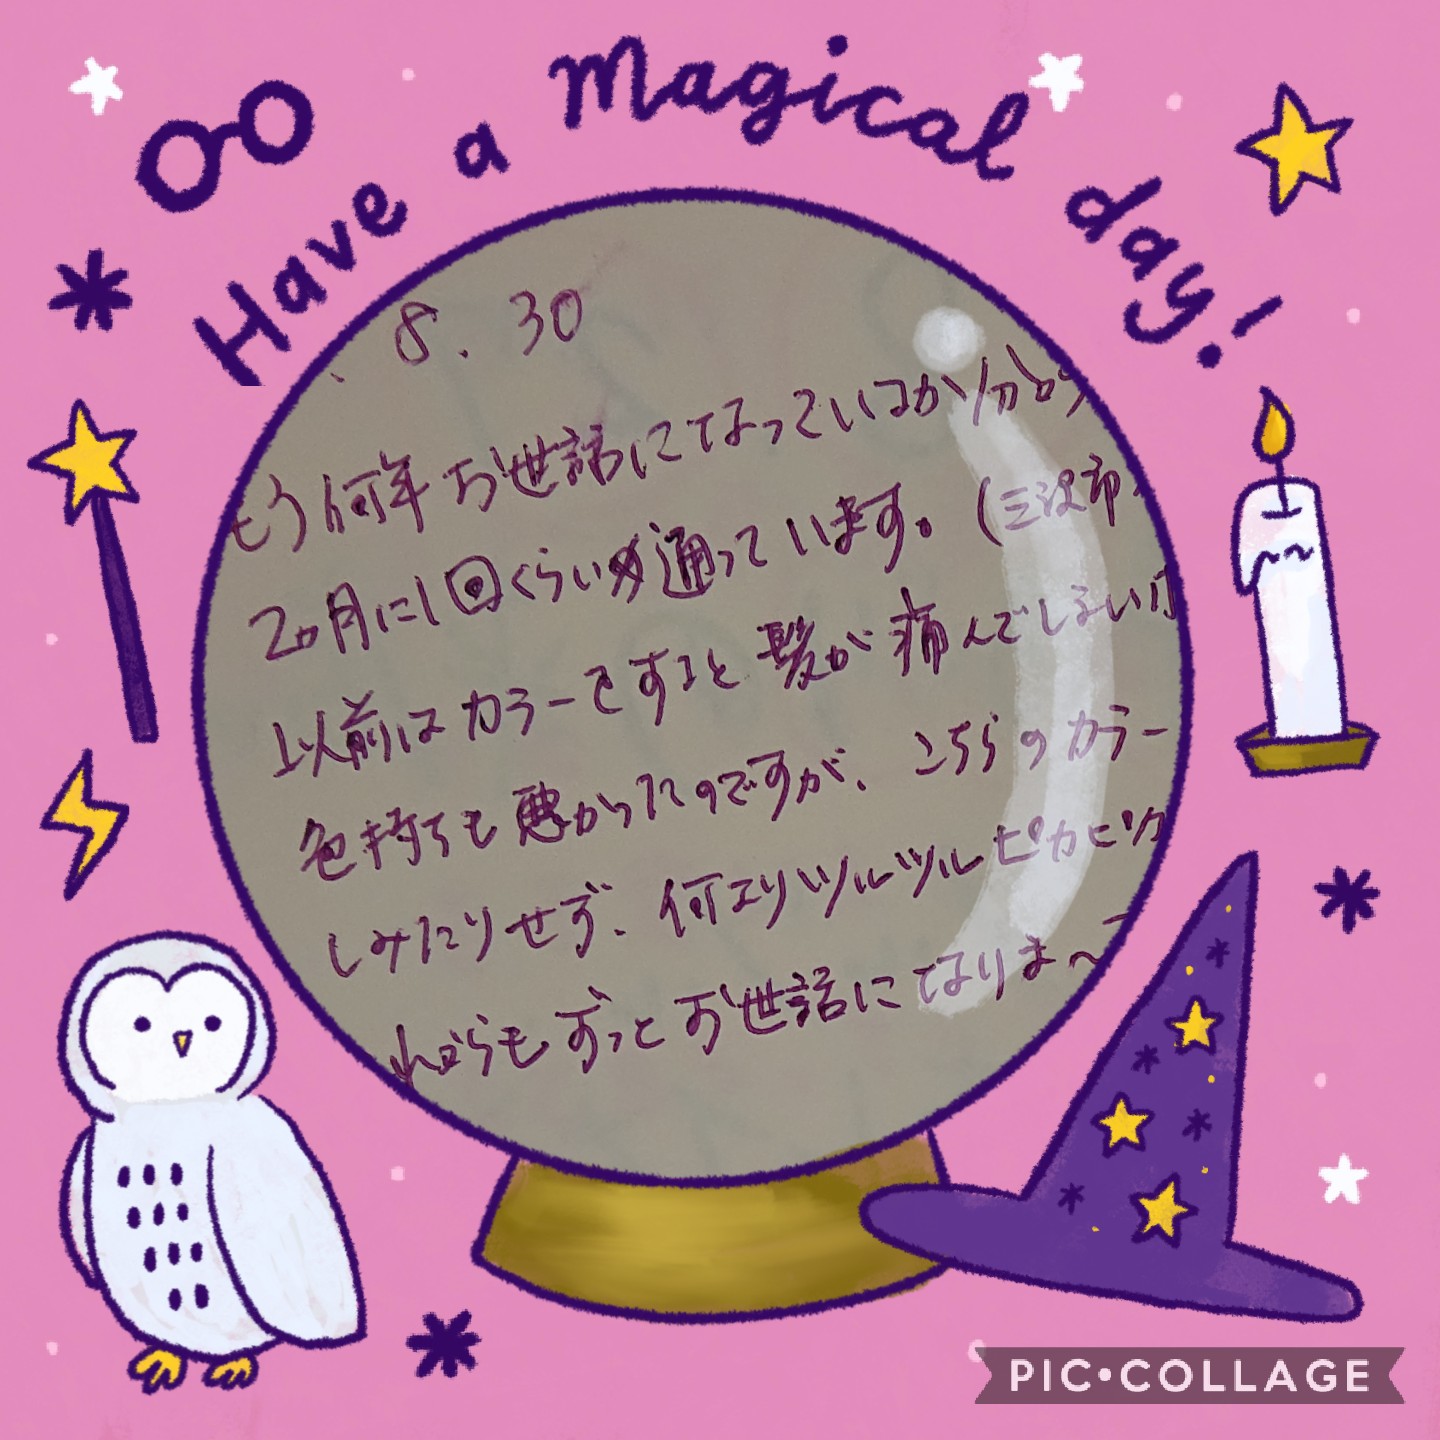 Have a Magical day!
8. 30
もう何年お世話になっているか分
2ヶ月に1回くらい通っています。(三沢市
以前はカラーをすると髪が痛んでしまい
色持ちも悪かったのですが、こちらのカラー
しみたりせず、何よりツルツルピカピカ
れからもずっとお世話になりま〜
PIC•COLLAGE